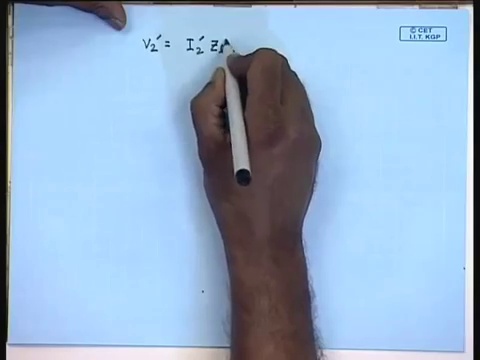 © CET
I.I.T. KGP
V₂′ = I₂′ Z